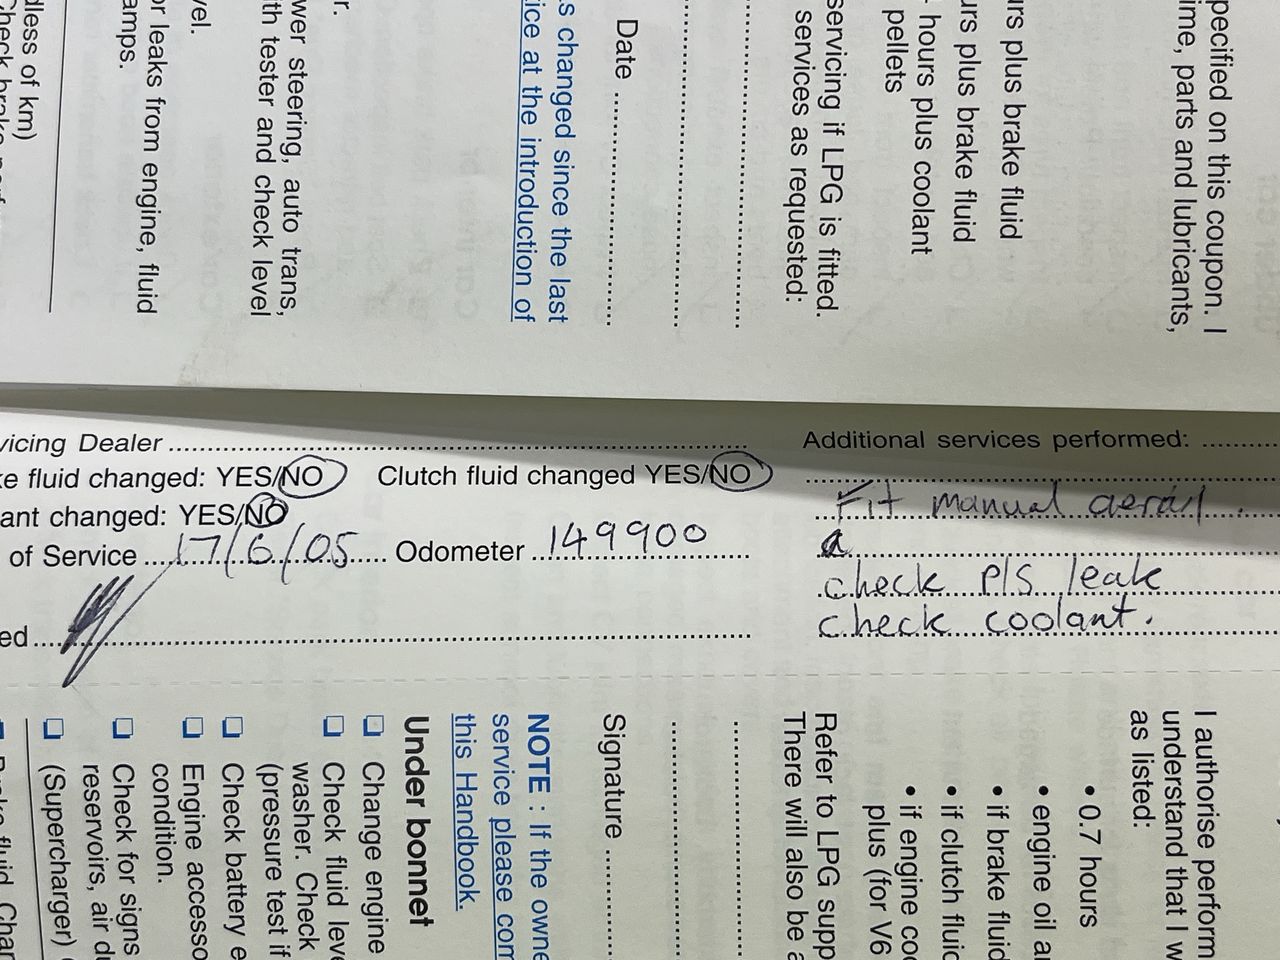 pecified on this coupon. I
ime, parts and lubricants,
urs plus brake fluid
urs plus brake fluid
hours plus coolant
pellets
servicing if LPG is fitted.
services as requested:
Date
s changed since the last
ice at the introduction of
r.
wer steering, auto trans,
ith tester and check level
vel.
or leaks from engine, fluid
amps.
dless of km)
vicing Dealer
ke fluid changed: YES/NO Clutch fluid changed YES/NO
ant changed: YES/NO
of Service 17/6/05 Odometer 149900
ed
Additional services performed:
Fit manual aerial.
a
check P/S leak
check coolant.
I authorise perform
understand that I w
as listed:
• 0.7 hours
• engine oil a
• if brake fluid
• if clutch fluid
• if engine coo
plus (for V6
Refer to LPG supp
There will also be a
Signature
NOTE : If the owne
service please com
this Handbook.
Under bonnet
Change engine
Check fluid leve
washer. Check
(pressure test if
Check battery e
Engine accesso
condition.
Check for signs
reservoirs, air du
(Supercharger)